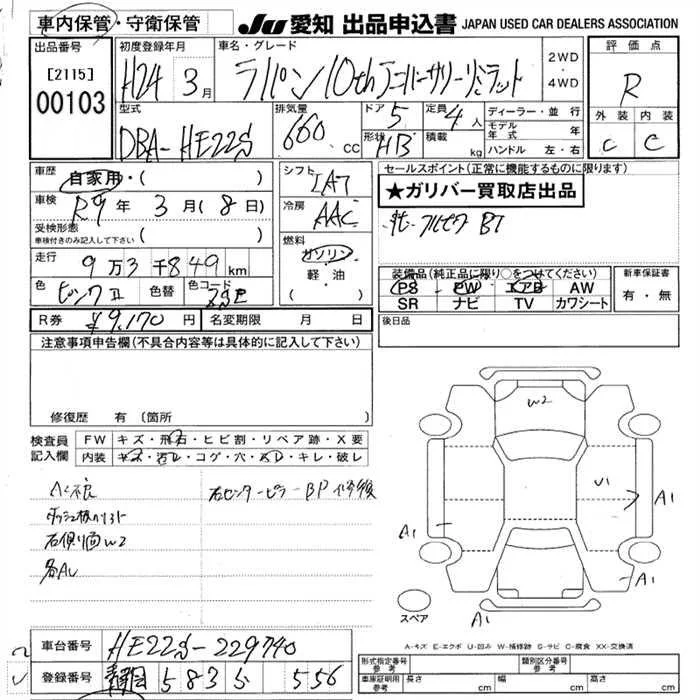 車内保管・守衛保管 JU 愛知 出品申込書 JAPAN USED CAR DEALERS ASSOCIATION
出品番号 初度登録年月 車名・グレード 評価点
[2115] H24 3月 ラパン 10thアニバーサリーリミテッド 2WD・4WD R
00103 型式 排気量 ドア 5 定員 4人 ディーラー・並行 外装 内装
DBA-HE22S 660 CC 形状 HB 積載 kg モデル年式 年 C C
ハンドル 左・右
車歴 自家用・( ) シフト IA7 セールスポイント(正常に機能するものに限り)
車検 R9年 3月(8日) 冷房 AAC ★ガリバー買取店出品
受検形態 車検付きのみ記入して下さい ( ) 燃料 BT
走行 9万3千849km ガソリン・軽・油 ( )
装備品(純正品に限り○をつけてください) 新車保証書
色 ピンクⅡ 色替 色コード PS PW エアB AW 有・無
SR ナビ TV カワシート
R券 ¥9,170円 名変期限 月 日 後日品
注意事項申告欄(不具合内容等は具体的に記入して下さい)
修復歴 有(箇所
検査員記入欄 FW キズ・飛石・ヒビ割・リペア跡・X要
内装 キズ・汚レ・コゲ・穴・スレ・キレ・破レ
W2
U1
A1
A1
A1
A1
AC不良 右センターピラーBP修復
右側面W2
各AU
スペア
A-キズ E-エクボ U-凹み W-補修跡 S-サビ C-腐食 XX-交換済
車台番号 HE22S-229740
登録番号 静岡 583 ら 556
形式指定番号 参考 類別区分番号 参考
車検証記載寸法 参考 長さ cm 幅 cm 高さ cm